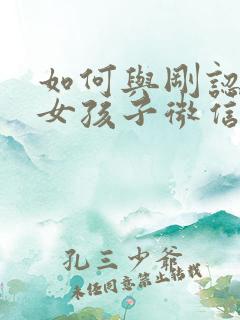 如何與剛認
女孩子微信
孔三少爺
未經同意禁止轉載